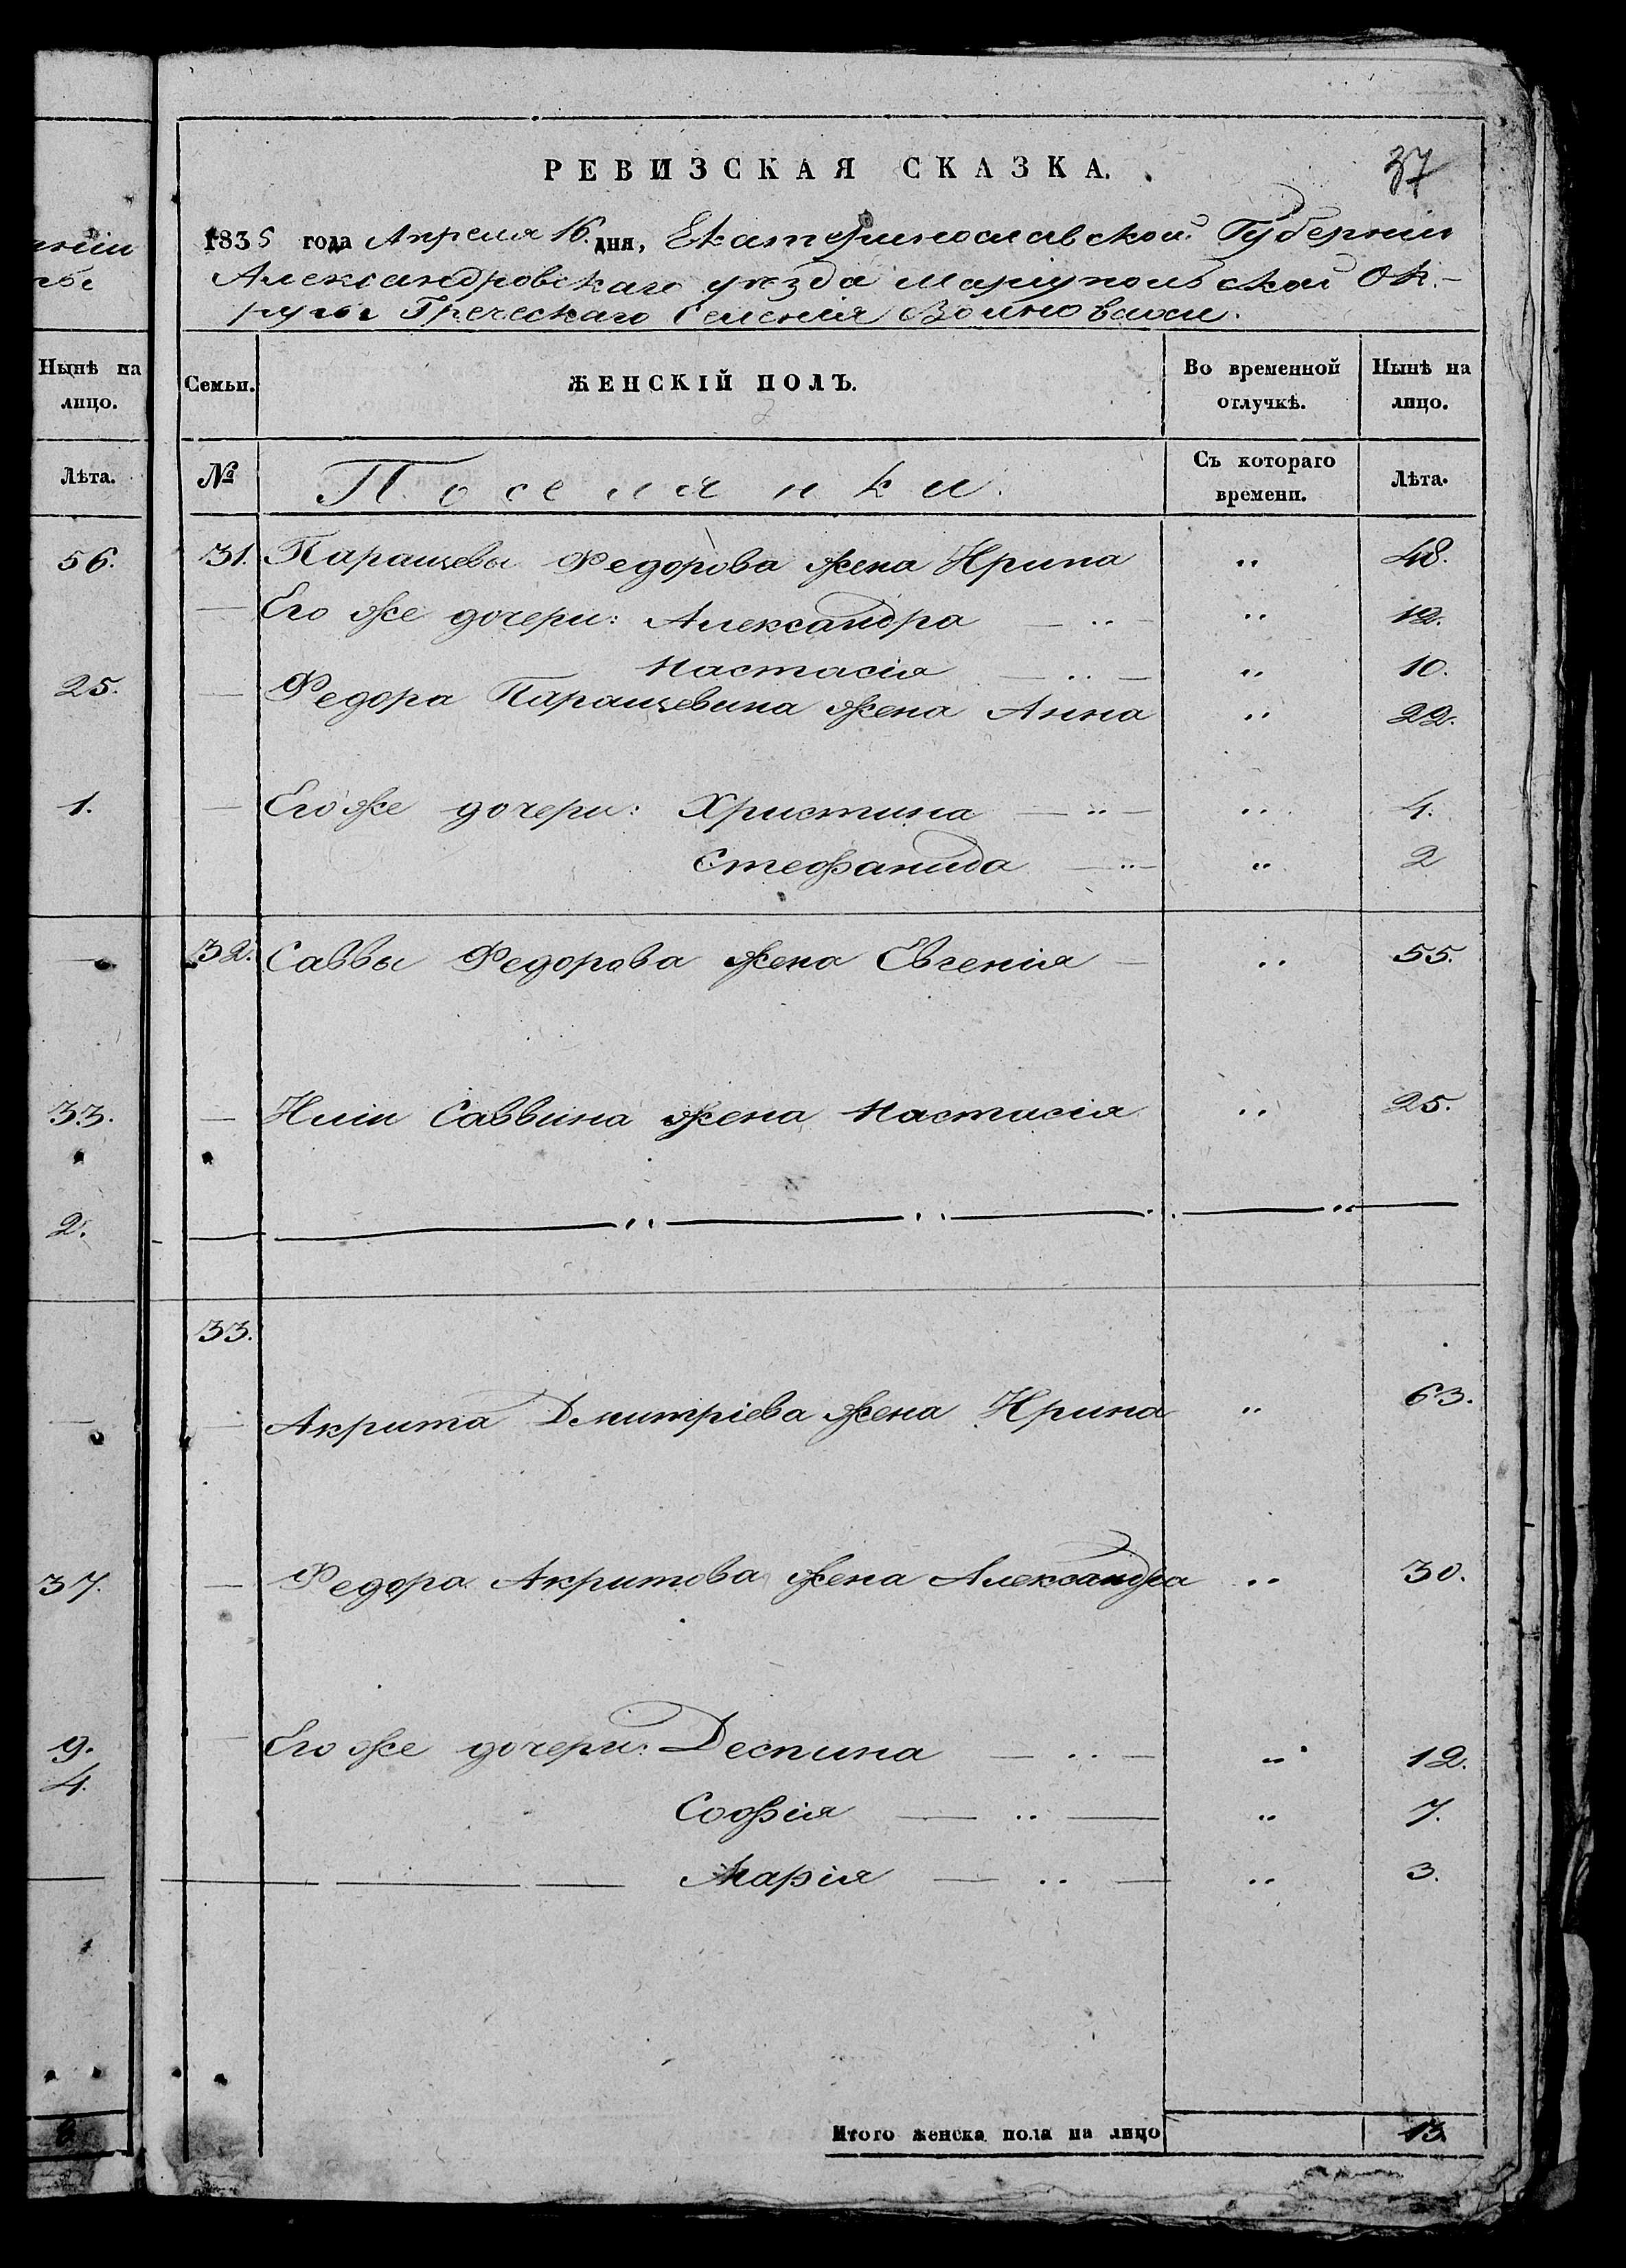 ніи
Нынѣ на
лицо.
Лѣта.
56.
25.
1.
33.
2.
37.
9.
4.
РЕВИЗСКАЯ СКАЗКА.
37
1835 года Апреля 16. дня, Екатеринославской Губерніи
Александровскаго уѣзда Маріупольской Ок-
руги Греческаго Селенія
Семьи. ЖЕНСКІЙ ПОЛЪ. Во временной отлучкѣ. Нынѣ на лицо.
№ Поселянки. Съ котораго времени. Лѣта.
31. Паращевы Федорова жена Ирина " 48.
Его же дочери: Александра — " — " 12.
Настасія — " — " 10.
— Федора Паращевина жена Анна " 22.
— Его же дочери: Христина — " — " 4.
Стефанида — " — " 2
32. Саввы Федорова жена Евгенія — " 55.
— Иліи Саввина жена Настасія " 25.
33.
— Акрита Дмитріева жена Ирина " 63.
— Федора Акритова жена Александра " 30.
Его же дочери: Деспина — " — " 12.
Софія — " — " 7.
Марія — " — " 3.
Итого женска пола на лицо 13